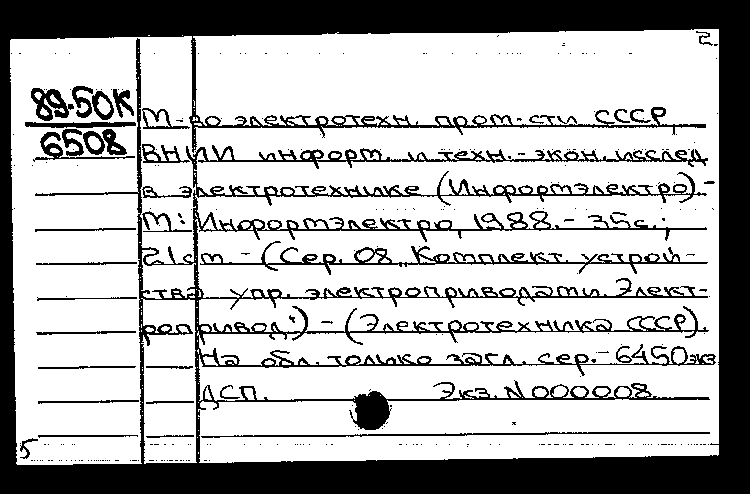 2.
89-50К
6508
М-во электротехн. пром-сти СССР,
ВНИИ информ. и техн.-экон. исслед.
в электротехнике (Информэлектро).-
М.: Информэлектро, 1988.- 35с.;
21см. - (Сер. 08 „Комплект. устрой-
ства упр. электроприводами. Элект-
ропривод") - (Электротехника СССР).
На обл. только загл. сер.- 6450экз.
ДСП. Экз. N 000008
5